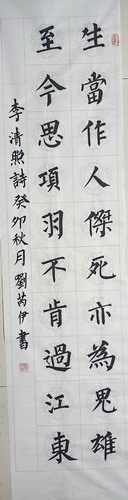 生當作人傑死亦為鬼雄
至今思項羽不肯過江東
李清照詩癸卯秋月劉芮伊書